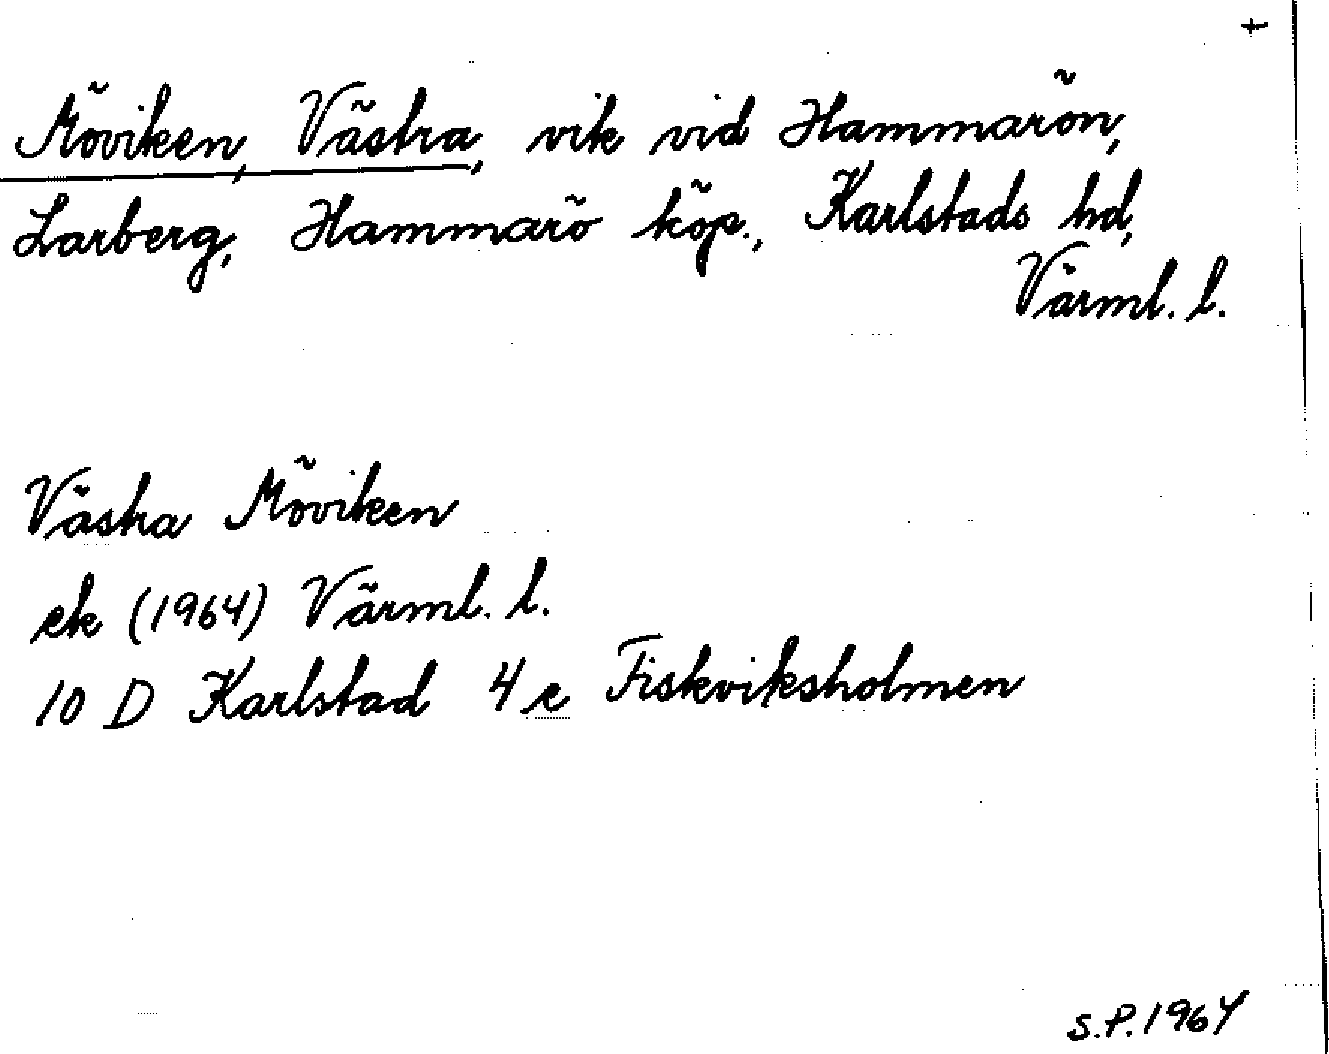 +
Möviken, Västra, vik vid Hammarön,
Larberg, Hammarö köp., Karlstads hd,
Värml. l.
Västra Möviken
ek (1964) Värml. l.
10 D Karlstad 4 e Fiskviksholmen
S.P. 1964